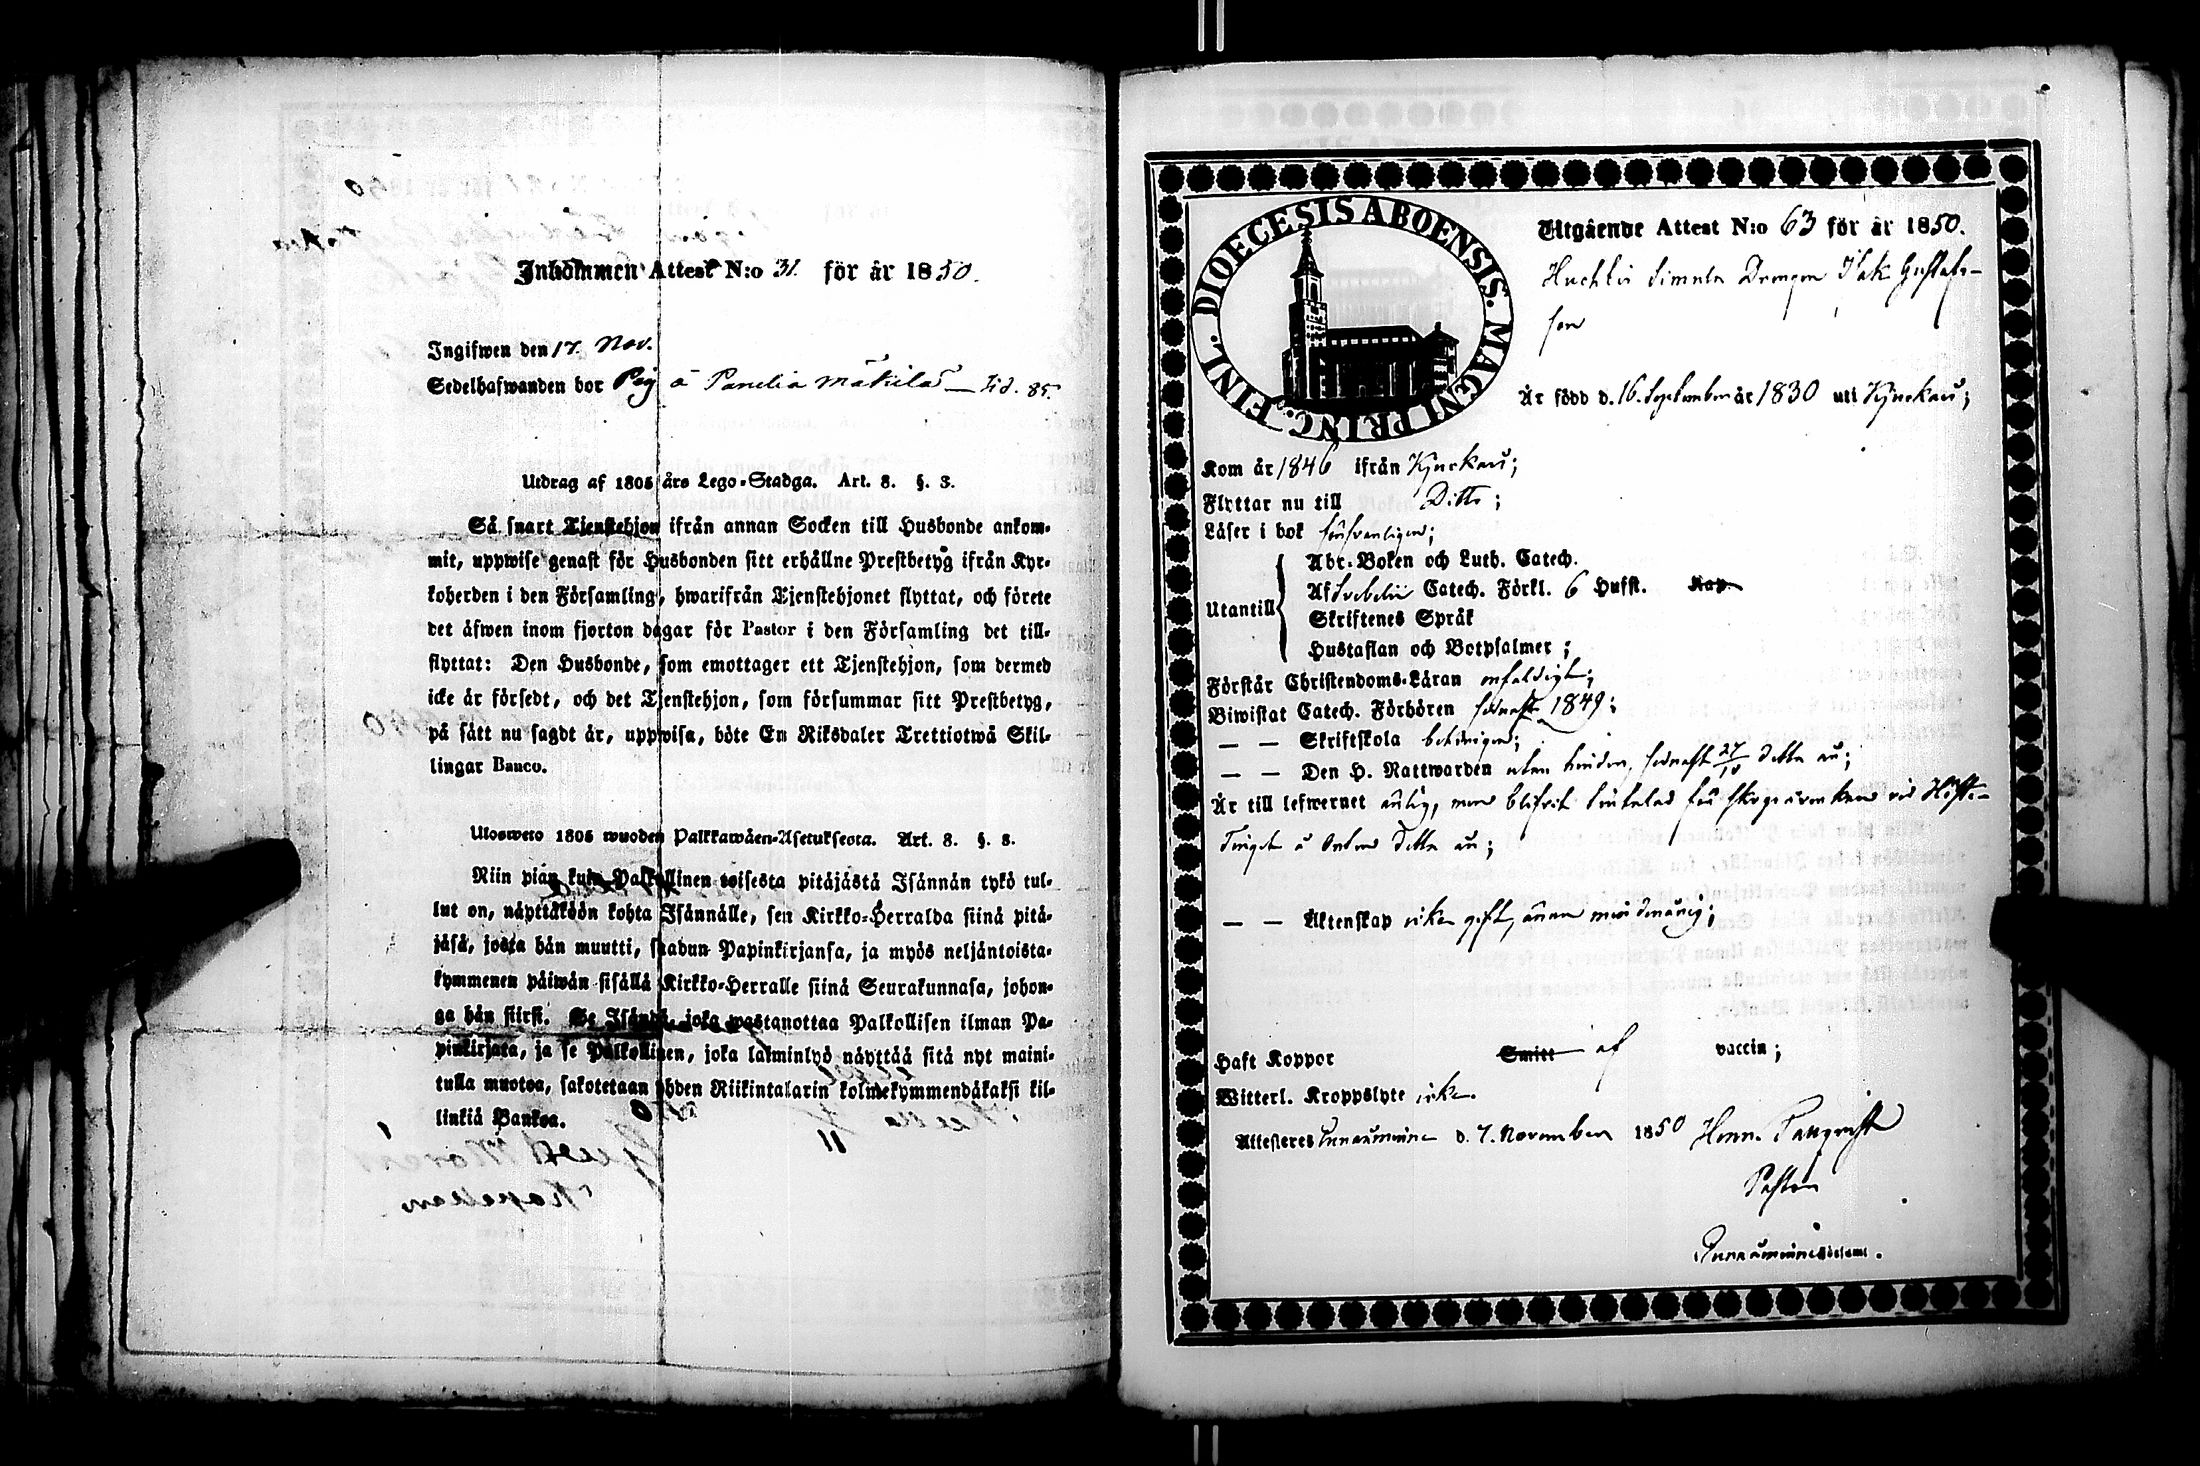 Inkommen Attest N:o 31. för år 1850.
Ingifwen den 17. Nov.
Sedelhafwanden bor Pig å Panelia Mäkilä — Sid. 85.
Utdrag af 1805 års Lego-Stadga. Art. 8. §. 3.
Så snart Tjenstehjon ifrån annan Socken till Husbonde ankom-
mit, uppwise genast för Husbonden sitt erhållne Prestbetyg ifrån Kyr-
koherden i den Församling, hwarifrån Tjenstehjonet flyttat, och förete
det äfwen inom fjorton dagar för Pastor i den Församling det till-
flyttat: Den Husbonde, som emottager ett Tjenstehjon, som dermed
icke är försedt, och det Tjenstehjon, som försummar sitt Prestbetyg,
på sätt nu sagdt är, uppwisa, böte En Riksdaler Trettiotwå Skil-
lingar Banco.
Ulosweto 1805 wuoden Palkkawäen-Asetuksesta. Art. 8. §. 3.
Niin pian kuin Palkollinen toisesta pitäjästä Isännän tykö tul-
lut on, näyttäköön kohta Isännälle, sen Kirkko-Herralda siinä pitä-
jäsä, josta hän muutti, saadun Papinkirjansa, ja myös neljäntoista-
kymmenen päiwän sisällä Kirkko-Herralle siinä Seurakunnasa, johon-
ga hän siirsi. Se Isändä, joka wastanottaa Palkollisen ilman Pa-
pinkirjata, ja se Palkollinen, joka laiminlyö näyttää sitä nyt maini-
tulla muotoa, sakotetaan yhden Riikintalarin kolmekymmendäkaksi kil-
linkiä Bankoa.
DIOECESIS ABOENSIS. MAGNI PRINC. FINL.
Utgående Attest N:o 63 för år 1850.
Drengen Isak Gustafs-
son
Är född d. 16. September år 1830 uti Kjukais;
Kom år 1846 ifrån Kjukais;
Flyttar nu till Ditto;
Läser i bok försvarligen;
Utantill
Abc-Boken och Luth. Catech.
Af Svebelii Catech. Förkl. 6 Hufst. Kap.
Skriftenes Språk
Hustaflan och Botpsalmer;
Förstår Christendoms-Läran enfaldigt;
Biwistat Catech. Förhören sednast 1849;
— — Skriftskola behörigen;
— — Den H. Nattwarden utan hinder, sednast 27/10 detta år;
Är till lefwernet ärlig, men blifvit för skogsåverkan vid Höste-
Tinget detta år;
— — Äktenskap icke gift, annan mindre
Haft Koppor Smitt af vaccin;
Witterl. Kroppslyte icke.
Attesteras Innamo d. 7. November 1850
Pastor